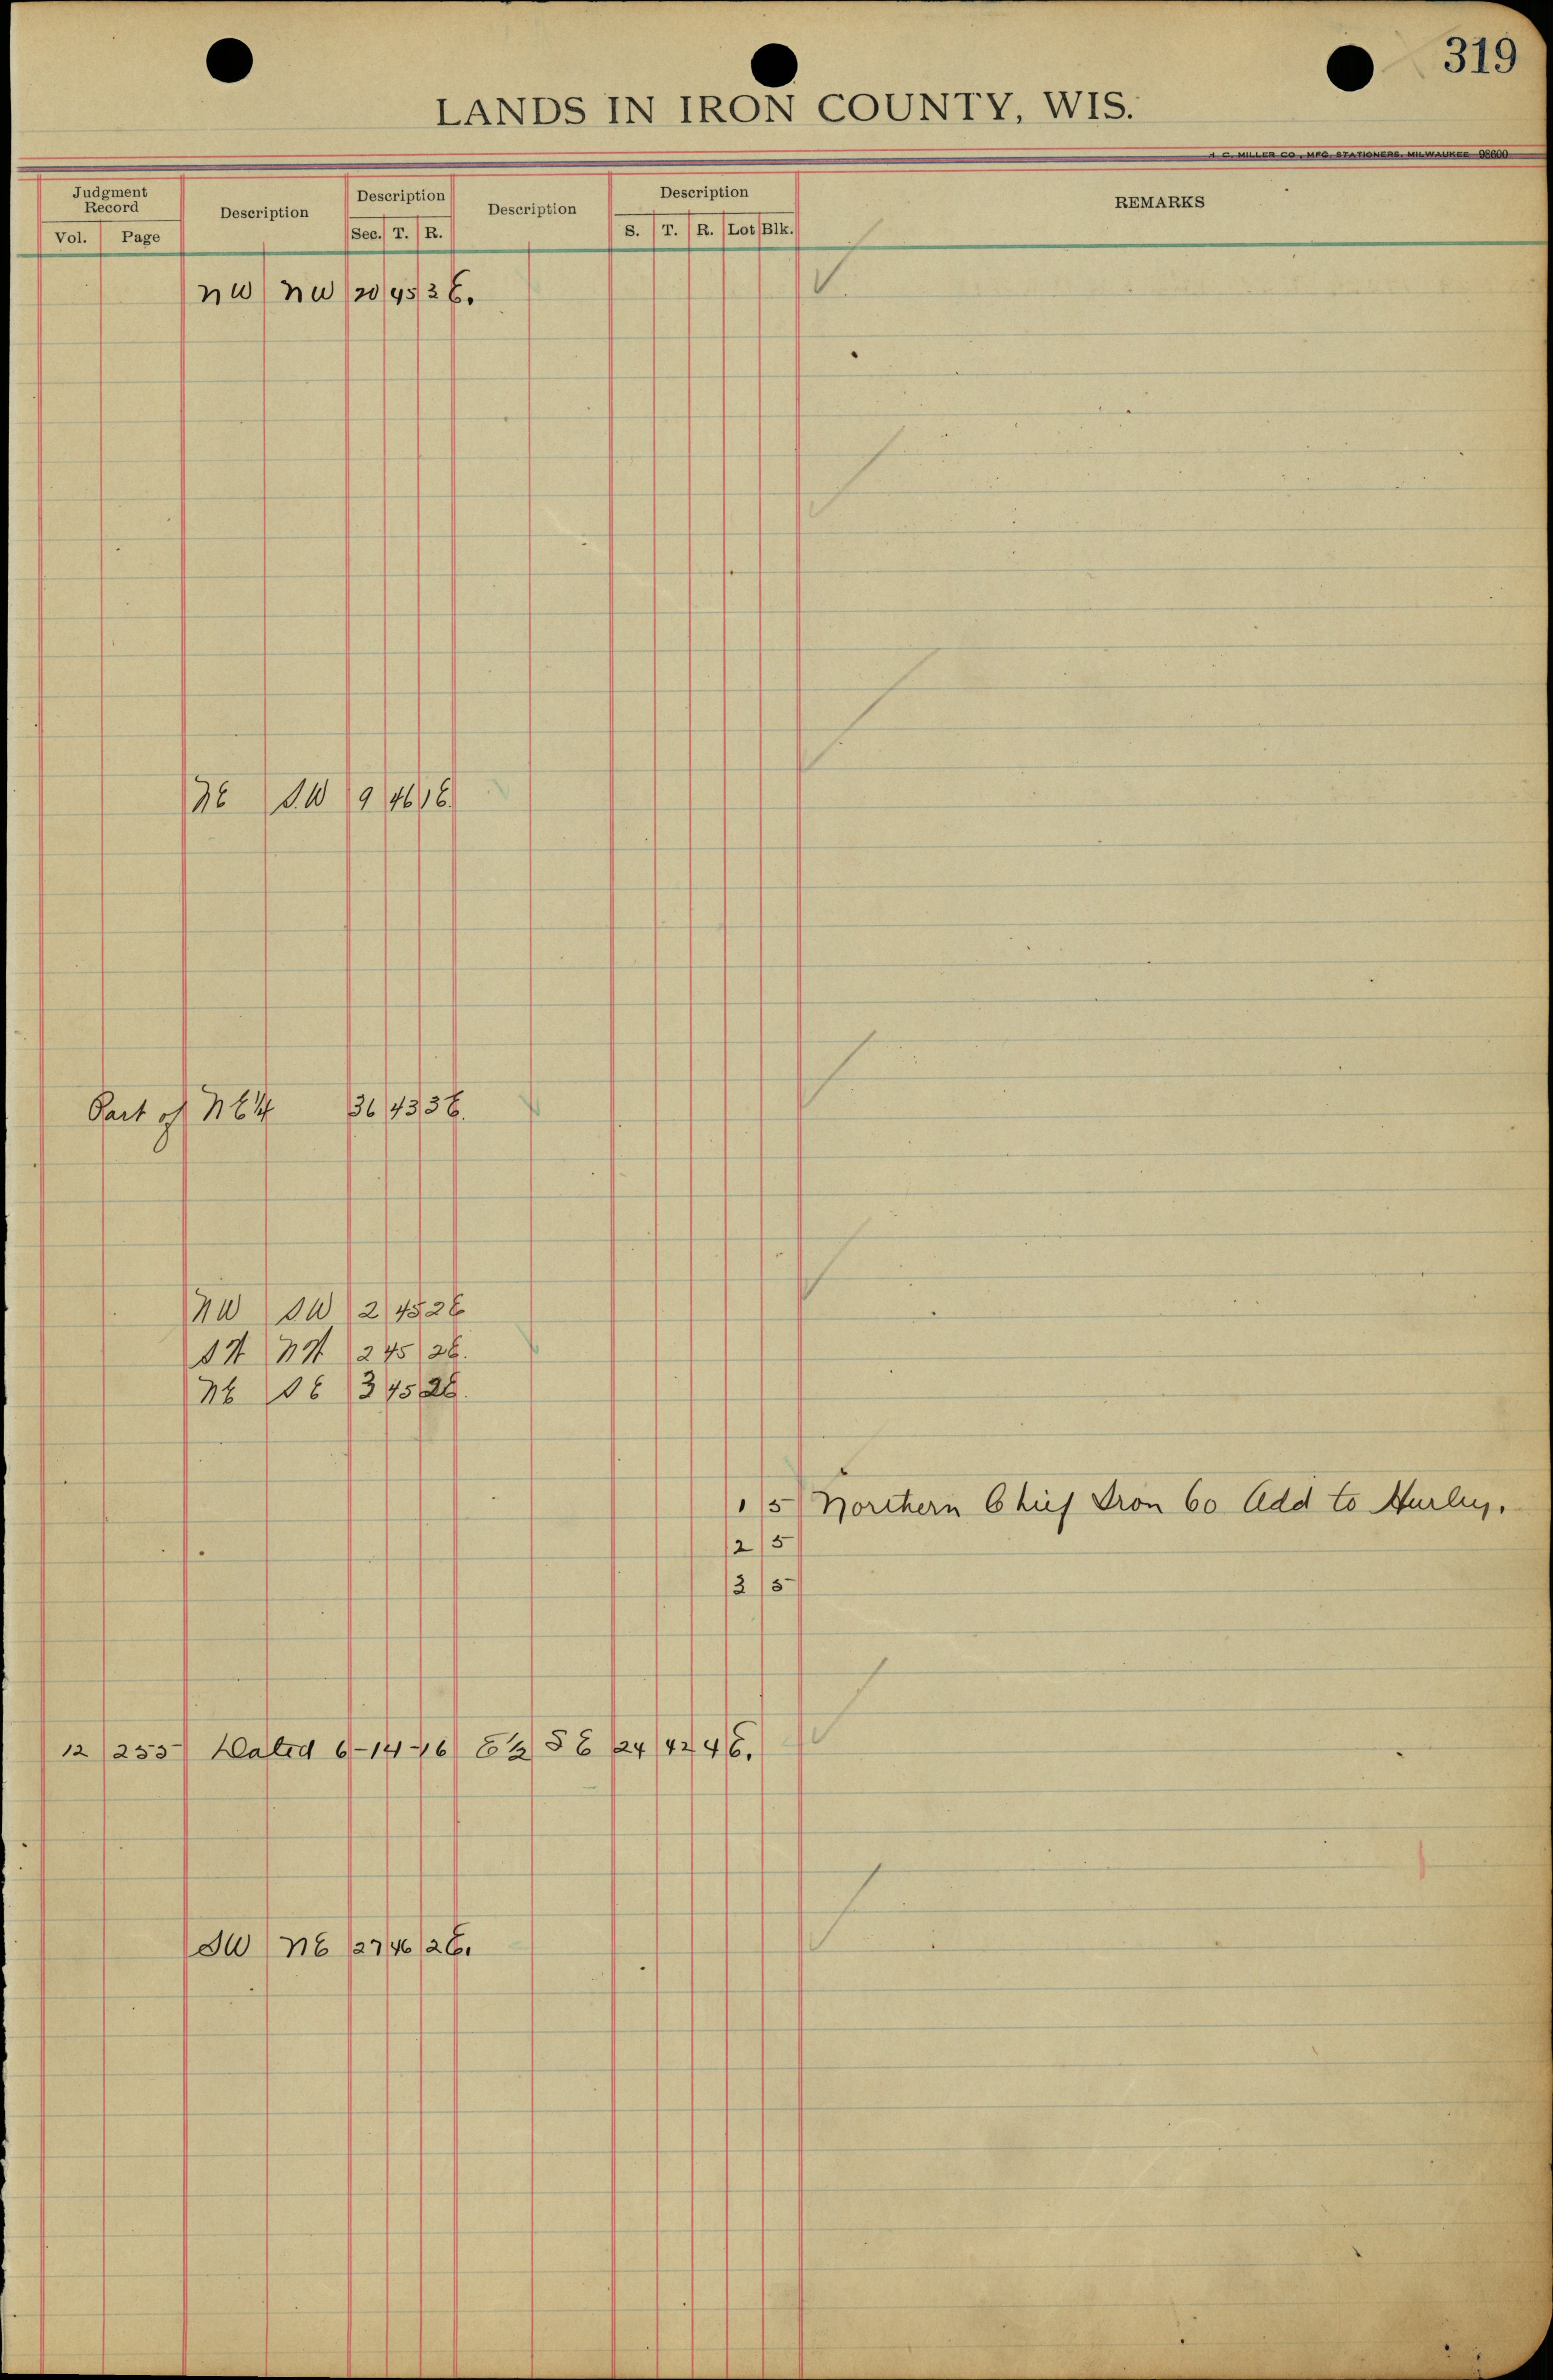 319
LANDS IN IRON COUNTY, WIS.
H. C. MILLER CO., MFG. STATIONERS, MILWAUKEE 98600
Judgment Record Description Description Description Description REMARKS
Vol. Page Sec. T. R. S. T. R. Lot Blk.
NW NW 20 45 3 E.
NE S.W 9 46 1 E.
Part of NE 1/4 36 43 3 E.
NW SW 2 45 2 E
SW NW 2 45 2 E.
NE SE 3 45 2 E.
1 5 Northern Chief Iron Co Add to Hurley.
2 5
3 5
12 255 Dated 6-14-16 E 1/2 SE 24 42 4 E.
SW NE 27 46 2 E.